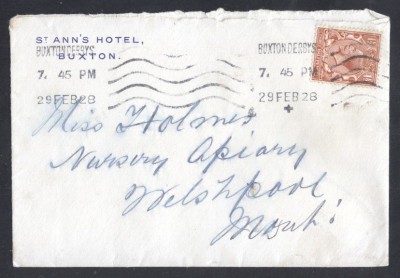 ST ANN'S HOTEL,
BUXTON.
BUXTON DERBYS
7. 45 PM
29 FEB 28
BUXTON DERBYS
7. 45 PM
29 FEB 28
Miss Holmes
Nursery Apiary
Welshpool